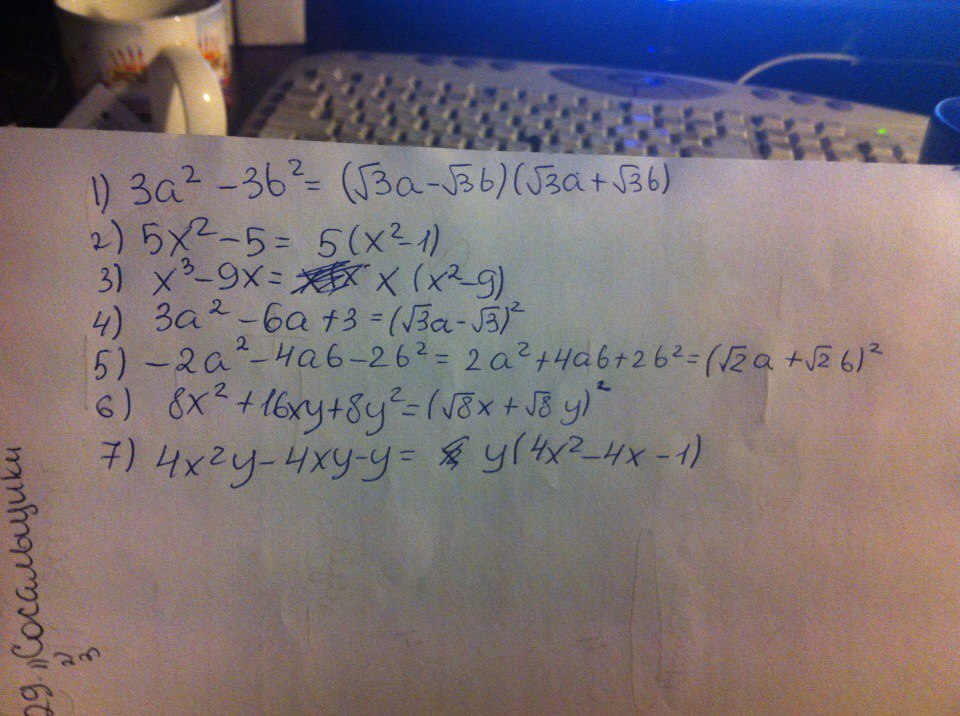 1) 3a² - 3b² = (√3a - √3b)(√3a + √3b)
2) 5x² - 5 = 5(x² - 1)
3) x³ - 9x = x (x² - 9)
4) 3a² - 6a + 3 = (√3a - √3)²
5) -2a² - 4ab - 2b² = 2a² + 4ab + 2b² = (√2a + √2b)²
6) 8x² + 16xy + 8y² = (√8x + √8y)²
7) 4x²y - 4xy - y = y(4x² - 4x - 1)
29. „Сосальщики
2)
3